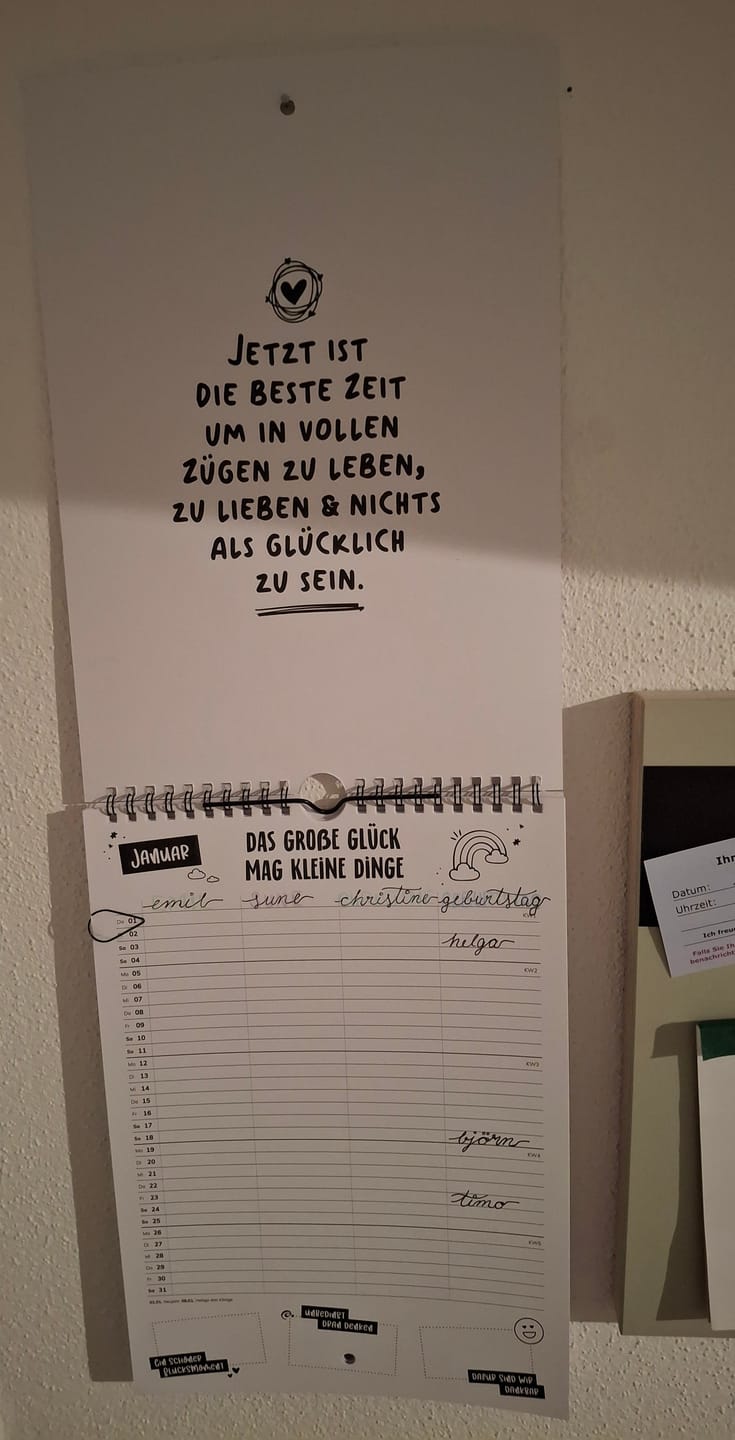 JETZT IST
DIE BESTE ZEIT
UM IN VOLLEN
ZÜGEN ZU LEBEN,
ZU LIEBEN & NICHTS
ALS GLÜCKLICH
ZU SEIN.
JANUAR
DAS GROßE GLÜCK
MAG KLEINE DINGE
emil sune christine geburtstag
Do 01 KW1
02
Sa 03 helga
So 04
Mo 05 KW2
Di 06
Mi 07
Do 08
Fr 09
Sa 10
So 11
Mo 12 KW3
Di 13
Mi 14
Do 15
Fr 16
Sa 17
So 18 björn
Mo 19 KW4
Di 20
Mi 21
Do 22
Fr 23 timo
Sa 24
So 25
Mo 26 KW5
Di 27
Mi 28
Do 29
Fr 30
Sa 31
01.01. Neujahr, 06.01. Heilige drei Könige
EIN SCHÖNER
GLÜCKSMOMENT
UNBEDINGT
DRAN DENKEN
DAFÜR SIND WIR
DANKBAR
Ihr
Datum:
Uhrzeit:
Ich freu
Falls Sie Ih
benachricht